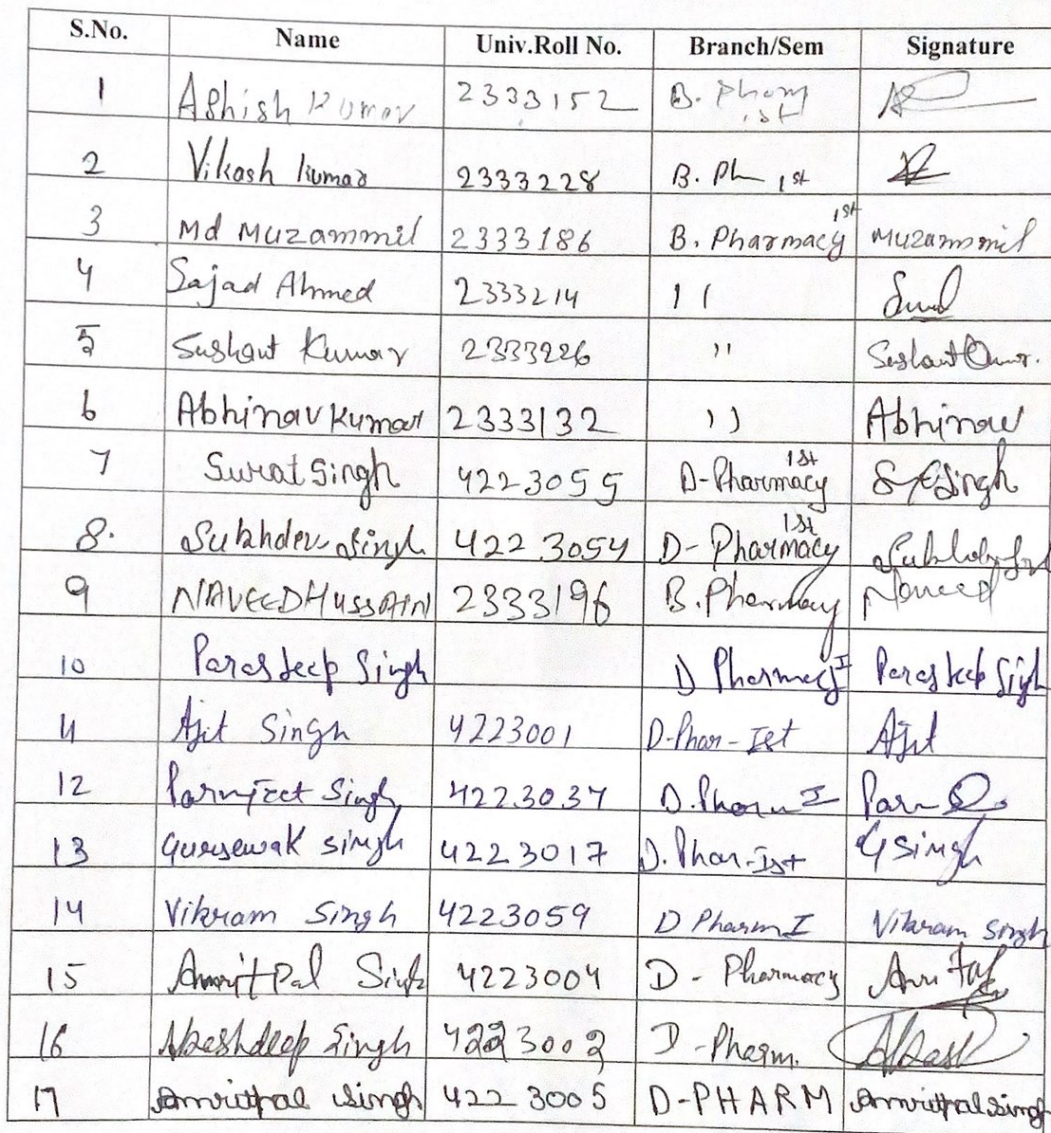 S.No. Name Univ.Roll No. Branch/Sem Signature
1 Ashish Kumar 2333152 B. Pham 1st
2 Vikash kumar 2333228 B. Ph 1st
3 Md Muzammil 2333186 B. Pharmacy 1st Muzammil
4 Sajad Ahmed 2333214 11
5 Sushant Kumar 2333226 " Sushant Kumar.
6 Abhinav Kumar 2333132 )) Abhinav
7 Surat Singh 4223055 D-Pharmacy 1st Singh
8. Sukhdev Singh 4223054 D-Pharmacy 1st
9 NAVEED HUSSAIN 2333196 B. Pharmacy Naveed
10 Parasdeep Singh D Pharmacy I Parasdeep Singh
11 Ajit Singh 4223001 D-Phar-Ist Ajit
12 Parmjeet Singh 4223037 D. Pharm I
13 Gursewak singh 4223017 D. Phar-Ist G singh
14 Vikram Singh 4223059 D Pharm I Vikram singh
15 Amrit Pal Singh 4223004 D - Pharmacy
16 Akashdeep Singh D-Pharm. Akash
17 Amritpal singh 4223005 D-PHARM Amritpal singh